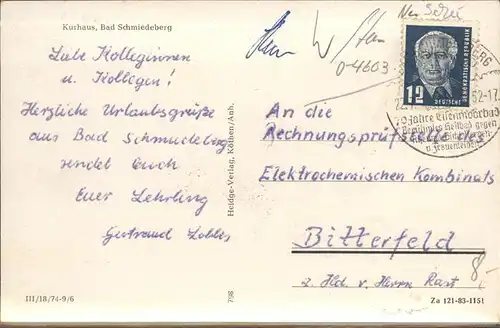 Kurhaus, Bad Schmiedeberg
Liebe Kolleginnen
u. Kollegen!
Herzliche Urlaubsgrüße
aus Bad Schmiedeberg
sendet Euch
Euer Lehrling
Gertraud
III/18/74-9/6
Heldge-Verlag, Köthen/Anh.
798
0-4603
DEUTSCHE
DEMOKRATISCHE REPUBLIK
12
BERG
52-17
70 Jahre Eisenmoorbad
Heilbad gegen
u. Frauenleiden
An die
Rechnungsprüfstelle des
Elektrochemischen Kombinats
Bitterfeld
z. Hd. v. Herrn Rast
8,-
Za 121-83-1151